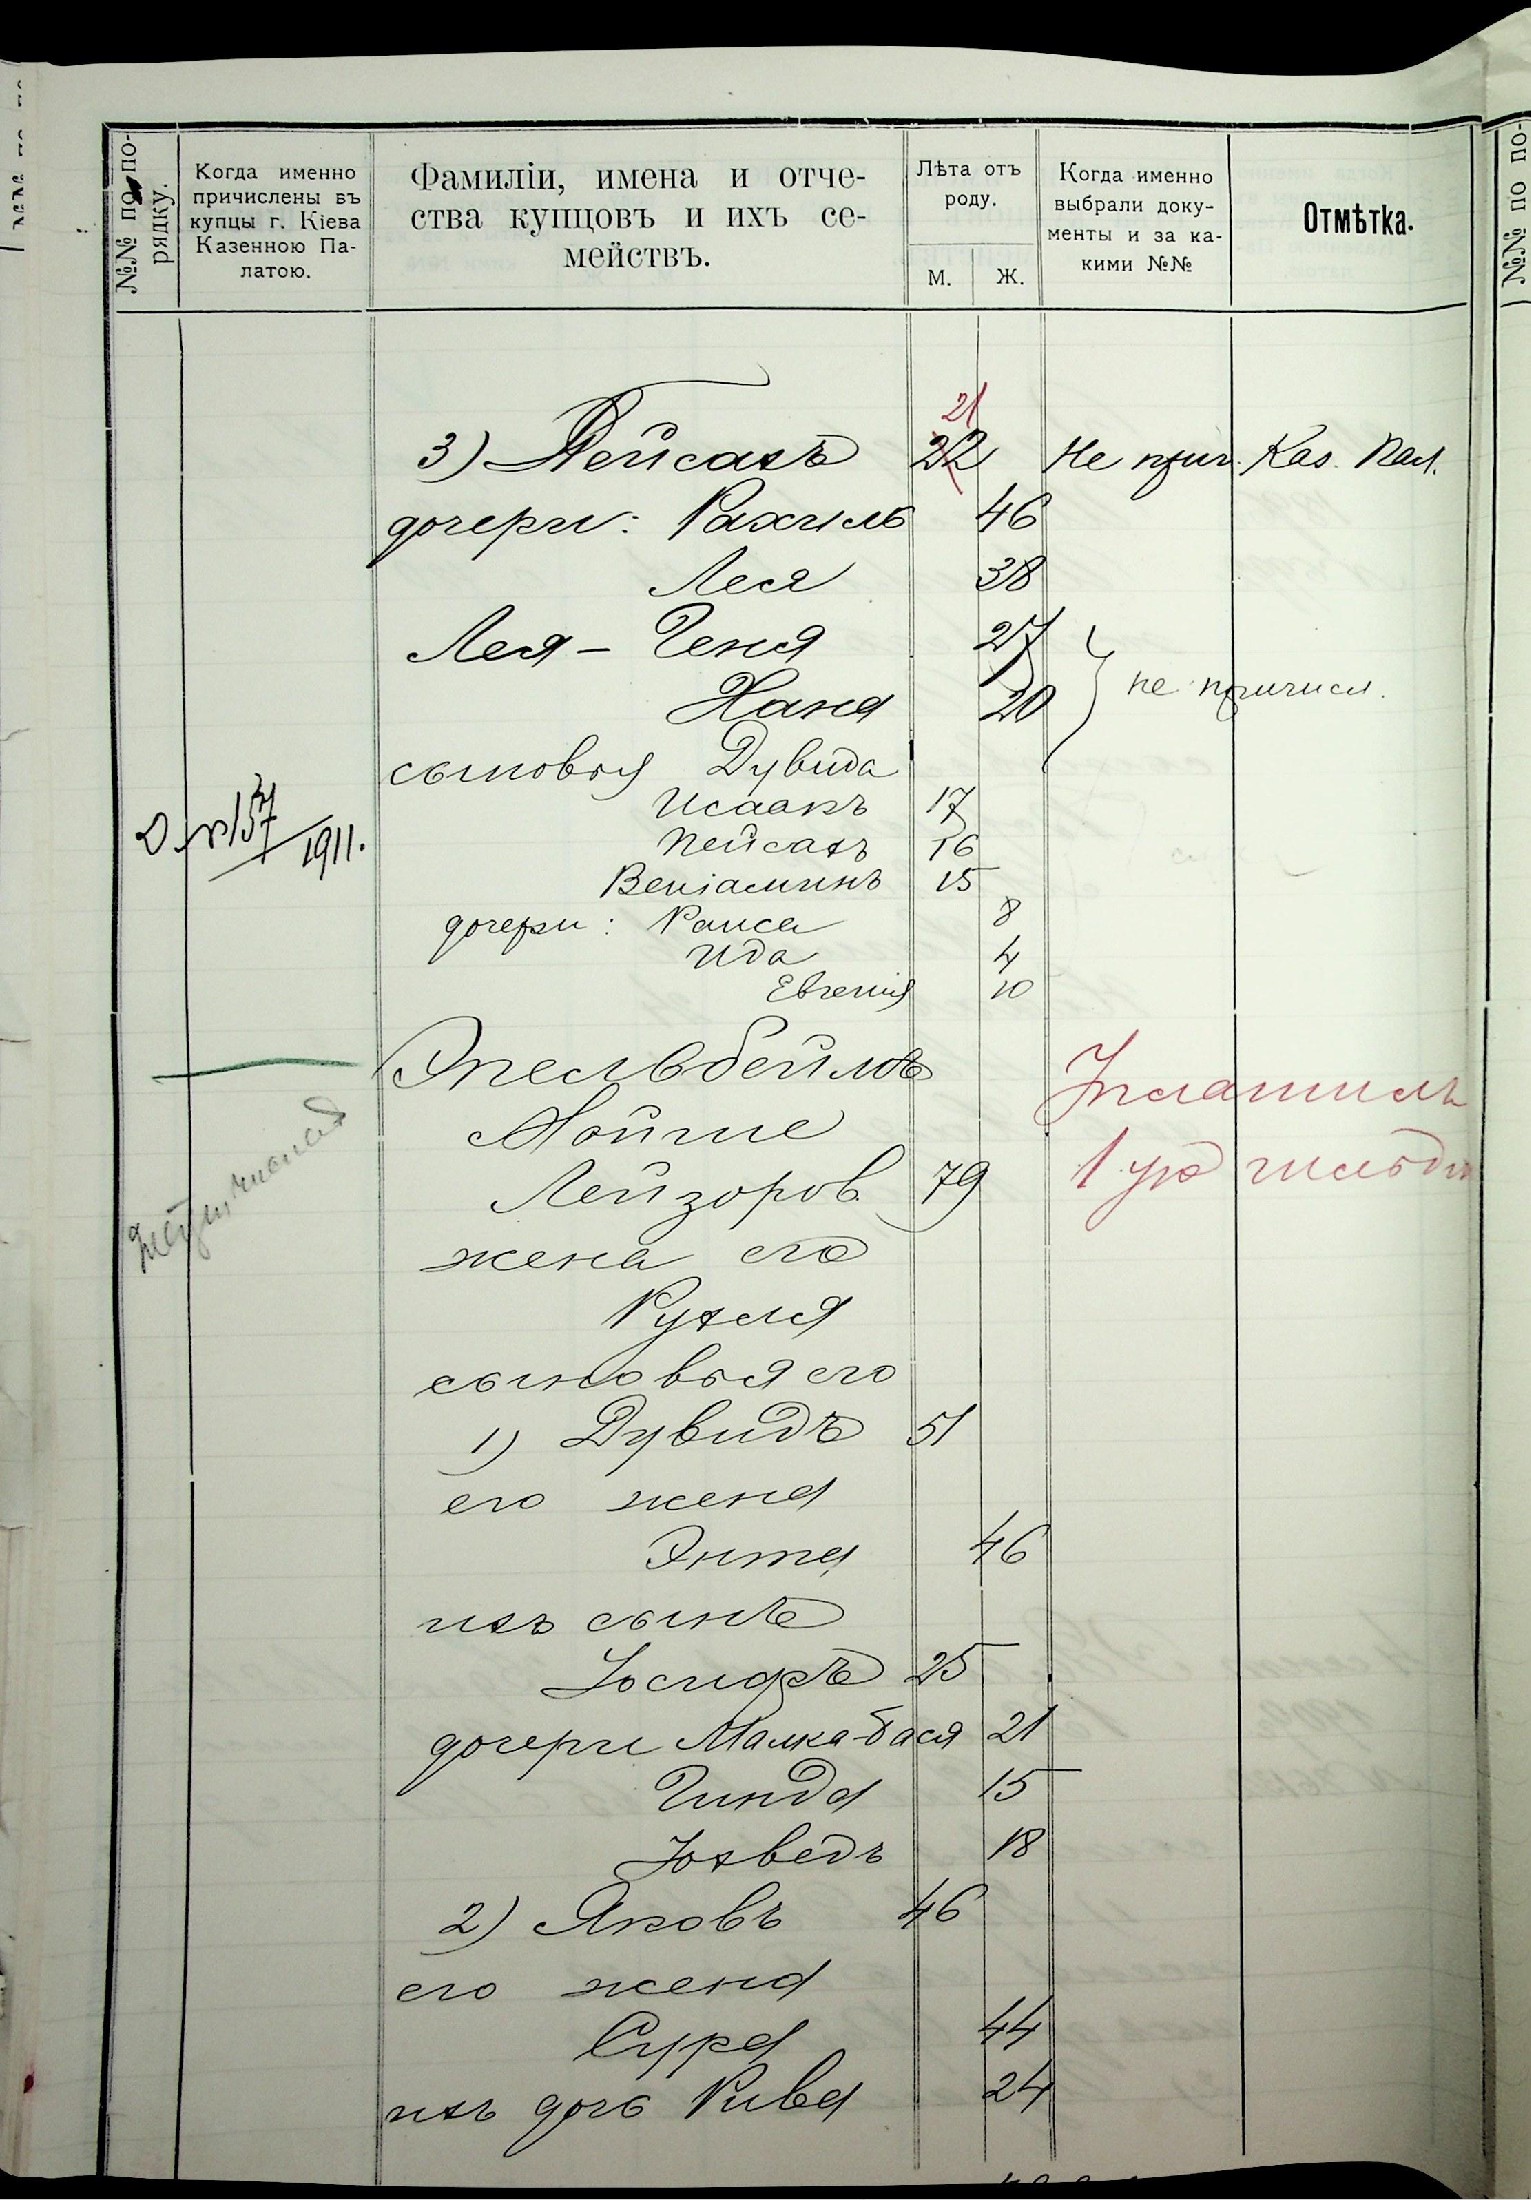 №№ по по-
рядку.
Когда именно
причислены въ
купцы г. Кіева
Казенною Па-
латою.
Фамиліи, имена и отче-
ства купцовъ и ихъ се-
мействъ.
Лѣта отъ
роду.
М.
Ж.
Когда именно
выбрали доку-
менты и за ка-
кими №№
Отмѣтка.
№№ по по-
21
3) Пейсахъ 22 Не прич. Каз. Пал.
дочери: Рахиль 46
Лея 38
Лея - Геня 27
Хана 20 не причисл.
сыновья Дувида
Исаакъ 17
157/1911.
Пейсахъ 16
Веніаминъ 15
дочери: Раиса 8
Ида 4
Евгенія 10
Эпельбеймъ
Уплатилъ
Мойше
Лейзоров 79 1 ую гильдію
жена его
Рухля
сыновья его
1) Дувидъ 51
его жена
Энта 46
ихъ сынъ
Іосифъ 25
дочери Малка-Бася 21
Гинда 15
Іохведъ 18
2) Яковъ 46
его жена
Сура 44
ихъ дочь Рива 24